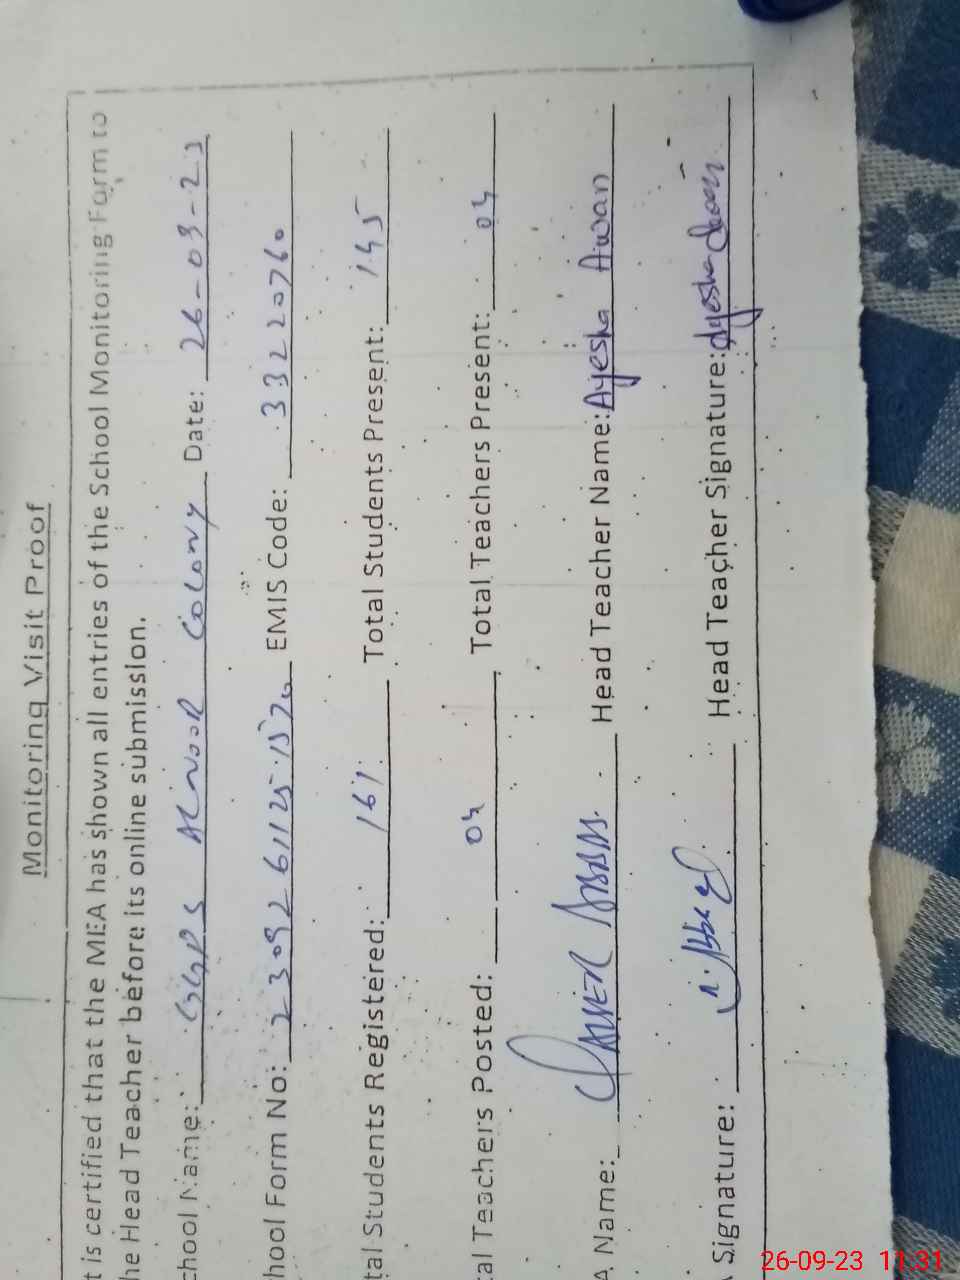 Monitoring Visit Proof
t is certified that the MEA has shown all entries of the School Monitoring Form to
he Head Teacher before its online submission.
chool Name: GGPS ALNOOR COLONY Date: 26-03-23
hool Form No: EMIS Code: 33220760
tal Students Registered: 167 Total Students Present: 145
tal Teachers Posted: 04 Total Teachers Present: 04
A Name: Head Teacher Name: Ayesha Awan
Signature: Head Teacher Signature: Ayesha
26-09-23 11:31